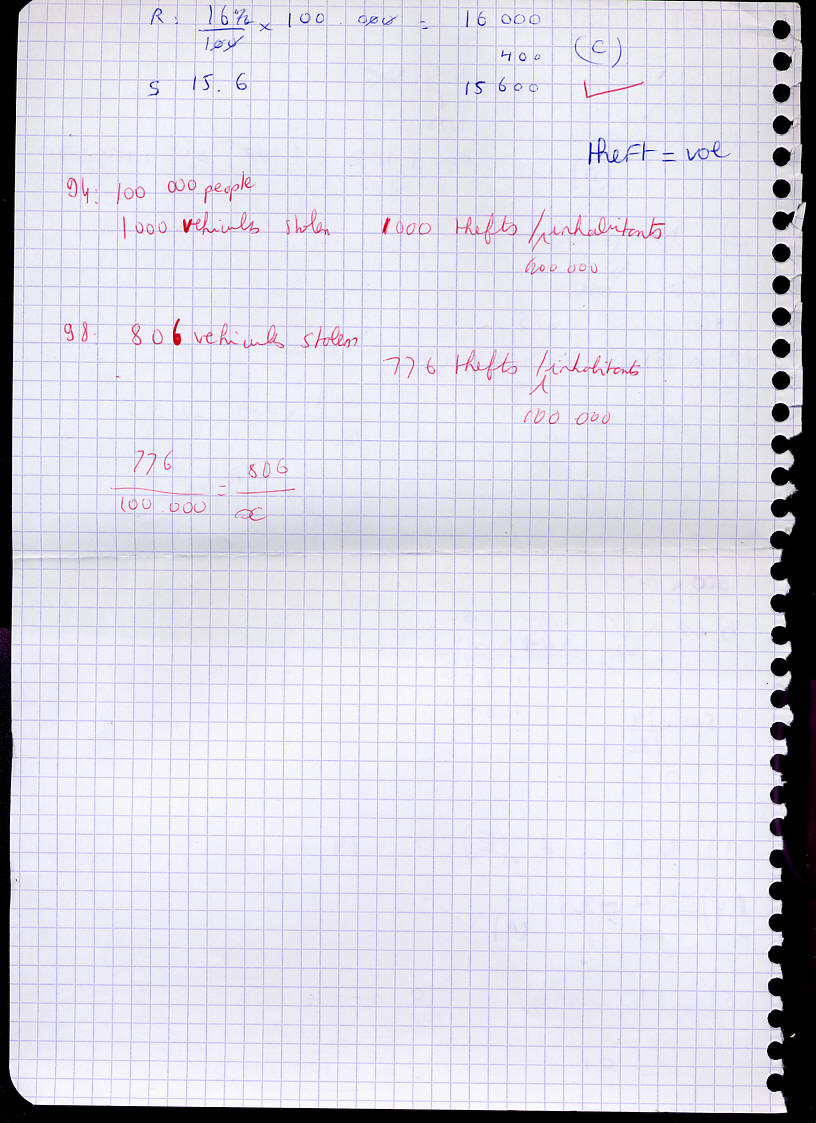 R: 16% x 100 000 = 16 000
100
400 (C)
S 15.6 15 600
theft = vol
94: 100 000 people
1000 vehiculs stolen 1000 thefts / inhabitants
100 000
98: 806 vehiculs stolen
776 thefts / inhabitants
100 000
776 = 806
100 000 x